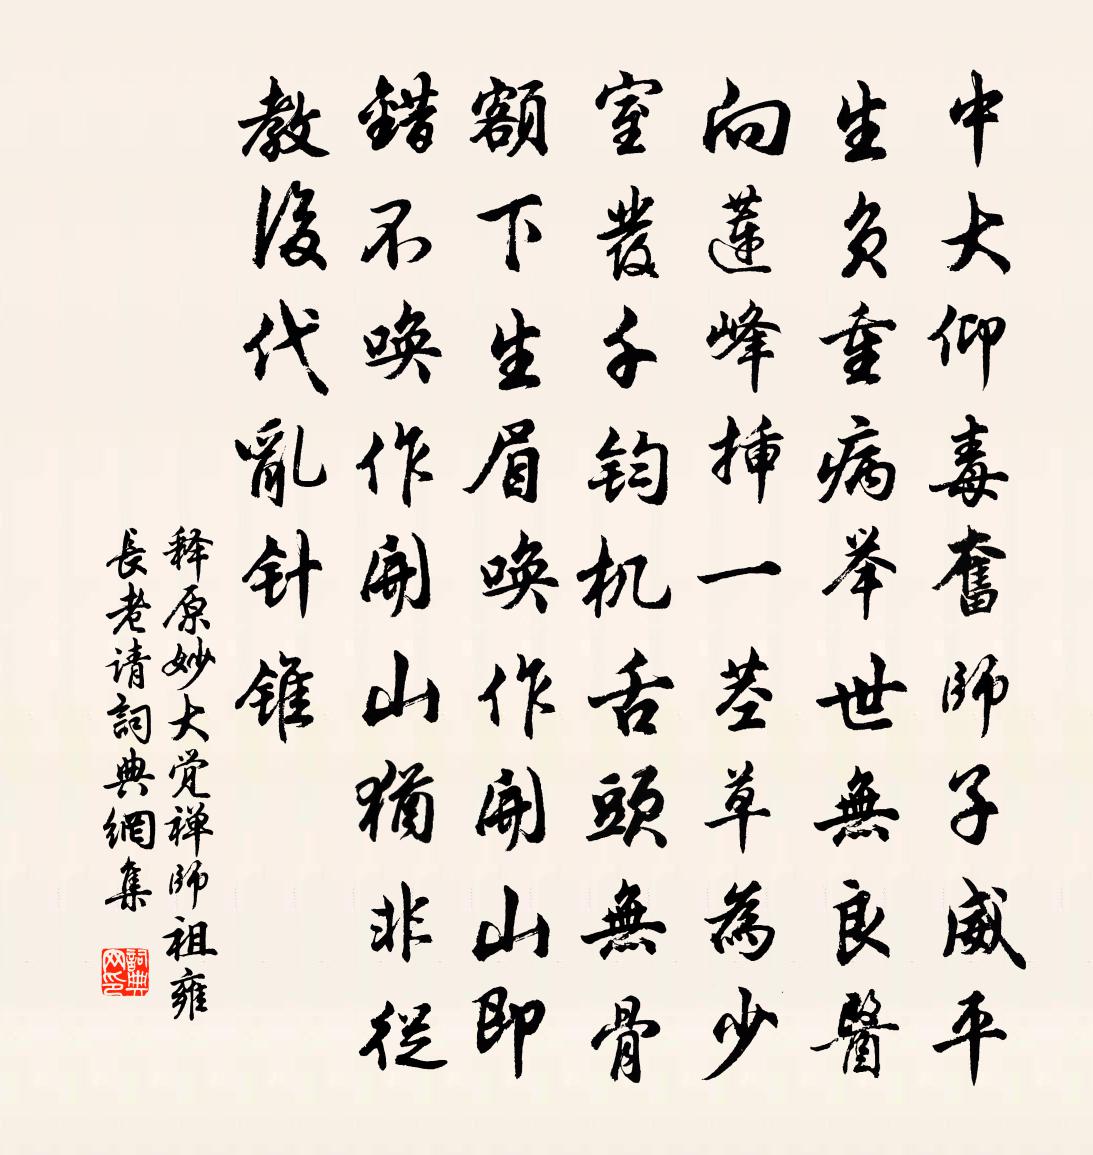 中大仰毒奮師子威平
生负重病举世無良醫
向蓮峰揷一茎草為少
室發千钧机舌頭無骨
額下生眉唤作開山即
錯不唤作開山猶非從
教後代亂针锥
释原妙大觉禅師祖雍
長老请詞典網集
詞典网印